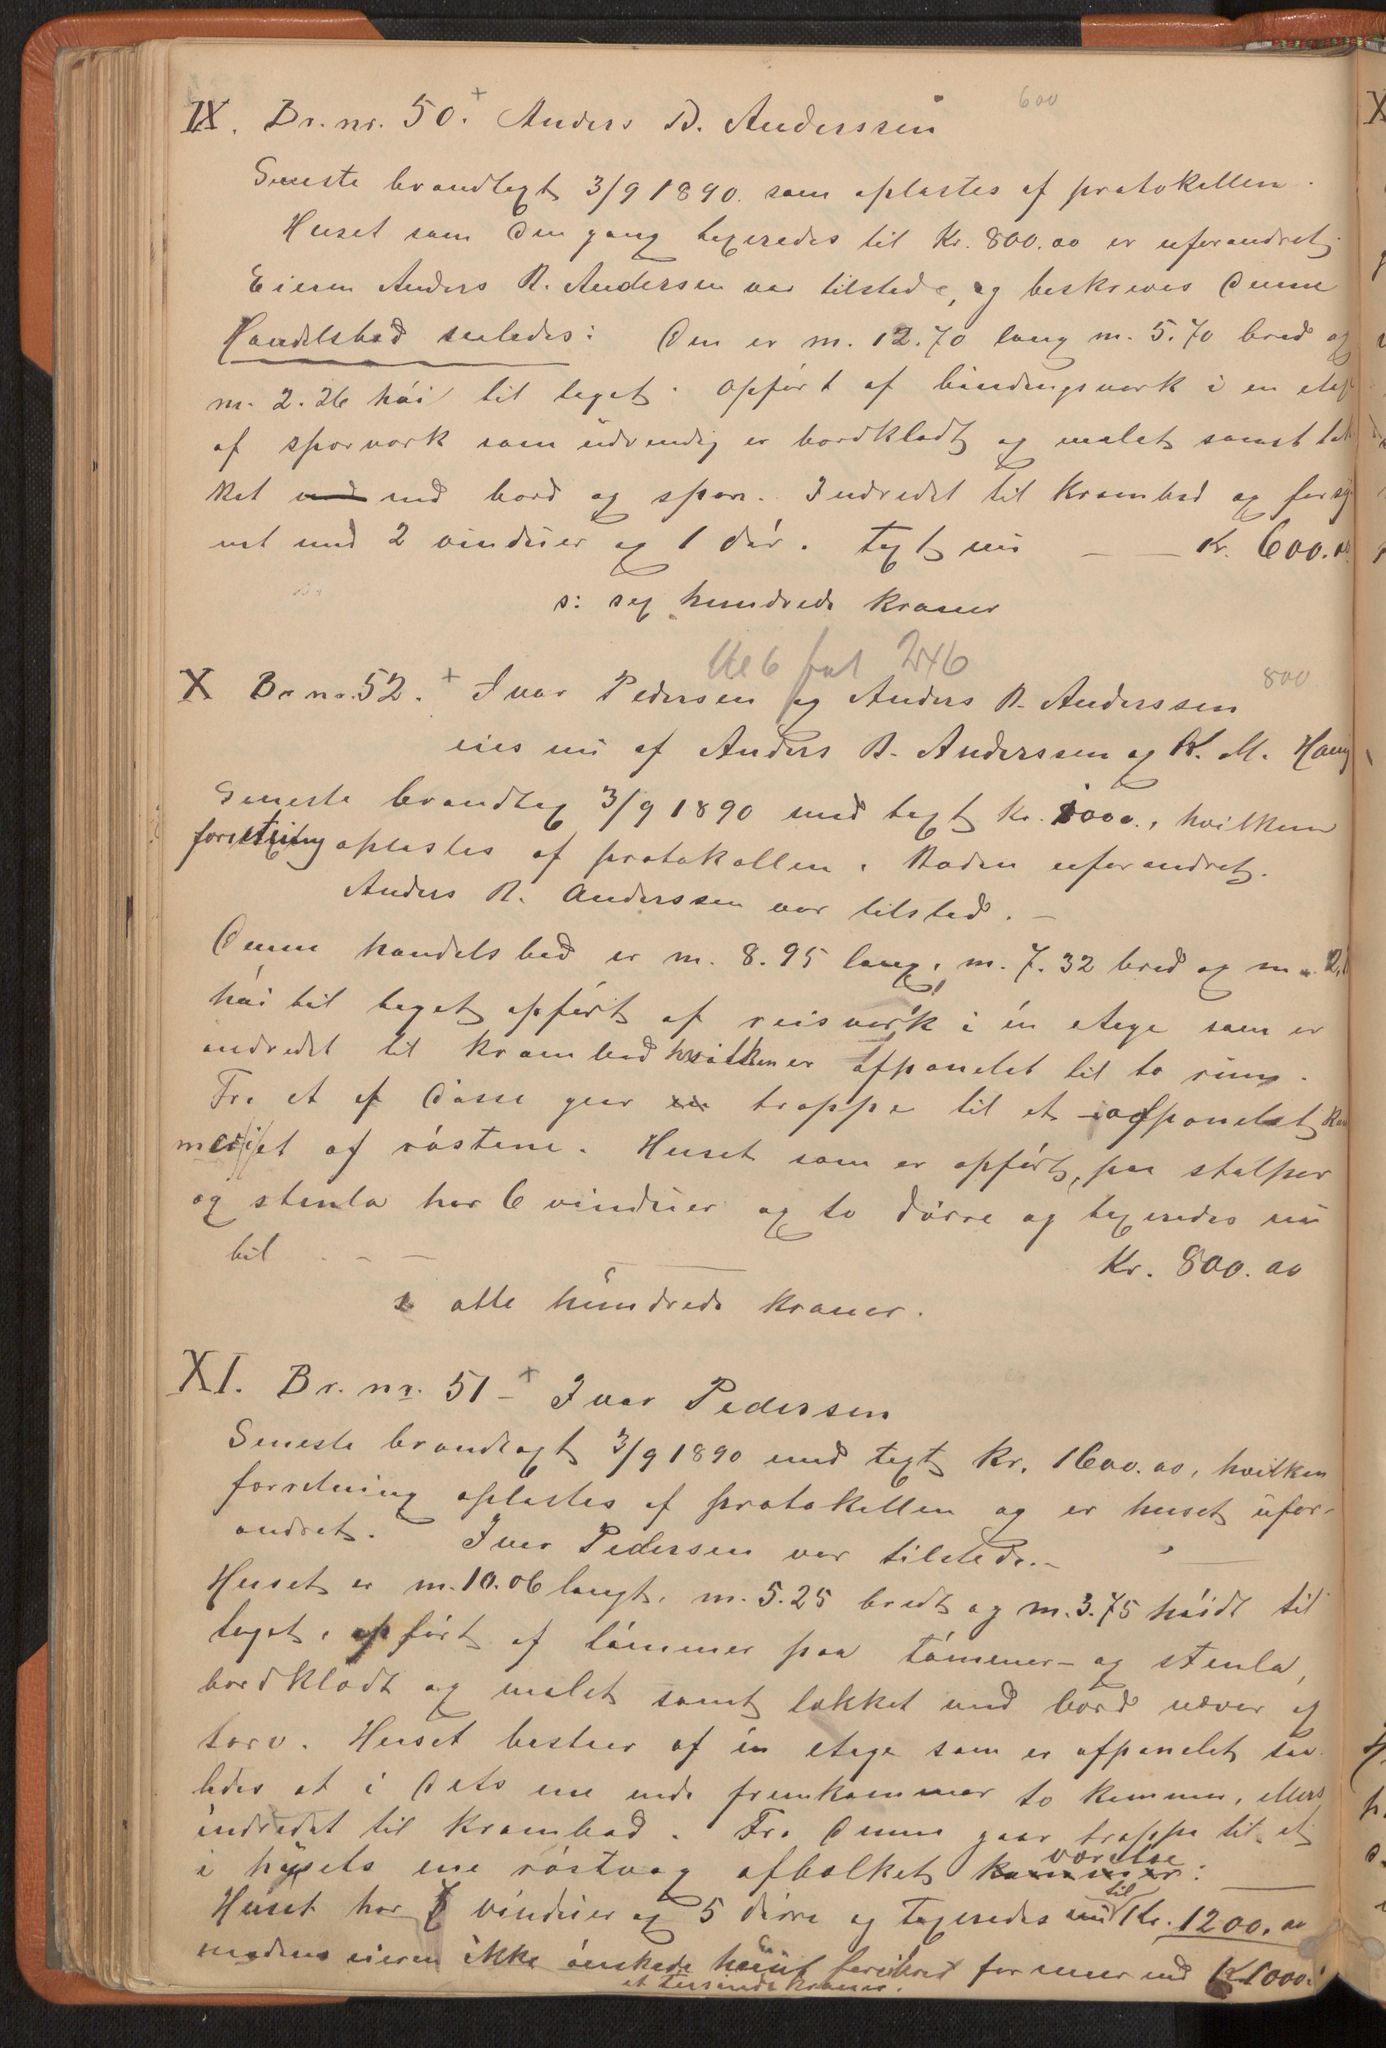 600
IX. Br. nr. 50. + Anders B. Anderssen
Seneste brandtagt 3/9 1890. som oplæstes af protokollen.
Huset som den gang taxeredes til Kr. 800.00 er uforandret.
Eieren Anders B. Andersen var tilstede, og beskreves denne
Handelsbod saaledes: Den er m. 12.70 lang m. 5.70 bred og
m. 2.26 høi til taget. Opført af bindingsverk i en etage
af sporværk som udvendig er bordklædt og malet samt tæk
ket med bord og spon. Indredet til Krambod og forsy
net med 2 vinduer og 1 dør. Taxt nu — — Kr. 600.00
s: sex hundrede kroner
246
800
X Br. nr. 52. + Ivar Pedersen og Anders B. Anderssen
eies nu af Anders B. Anderssen og K. M. Haug
Seneste brandtag 3/9 1890 med taxt Kr. 1000., hvilken
forretning oplæstes af protokollen. Boden uforandret.
Anders B. Anderssen var tilsted. —
Denne handelsbod er m. 8.95 lang, m. 7.32 bred og m. 2.
høi til taget opført af reisverk i én etage som er
indredet til krambod hvilken er afpanelet til to rum.
Fra et af disse gaar en trappe til et afpanelet
af røstene. Huset som er opført paa stolper
og stenla har 6 vinduer og to dørre og taxeredes nu
til — — Kr. 800.00
s atte hundrede kroner.
XI. Br. nr. 51 — + Ivar Pedersen
Seneste brandtagt 3/9 1890 med taxt Kr. 1600.00, hvilken
forretning oplæstes af protokollen og er huset ufor-
andret. Ivar Pedersen var tilstede. —
Huset er m. 10.06 langt, m. 5.25 bredt og m. 3.75 høidt til
taget, opført af tømmer paa tømmer- og stenla,
bordklædt og malet samt tækket med bord næver og
torv. Huset bestaar af én etage som er afpanelet saa
ledes at i dets ene ende fremkommer to kammer, ellers
indredet til krambod. Fra denne gaar trappe til et
i husets ene røstvæg afbalket kammer værelse:
Huset har 7 vinduer og 5 dørre og taxeredes nu til Kr. 1200.00
medens eieren ikke ønskede huset forsikret for mer end Kr 1000.
et tusinde kroner.